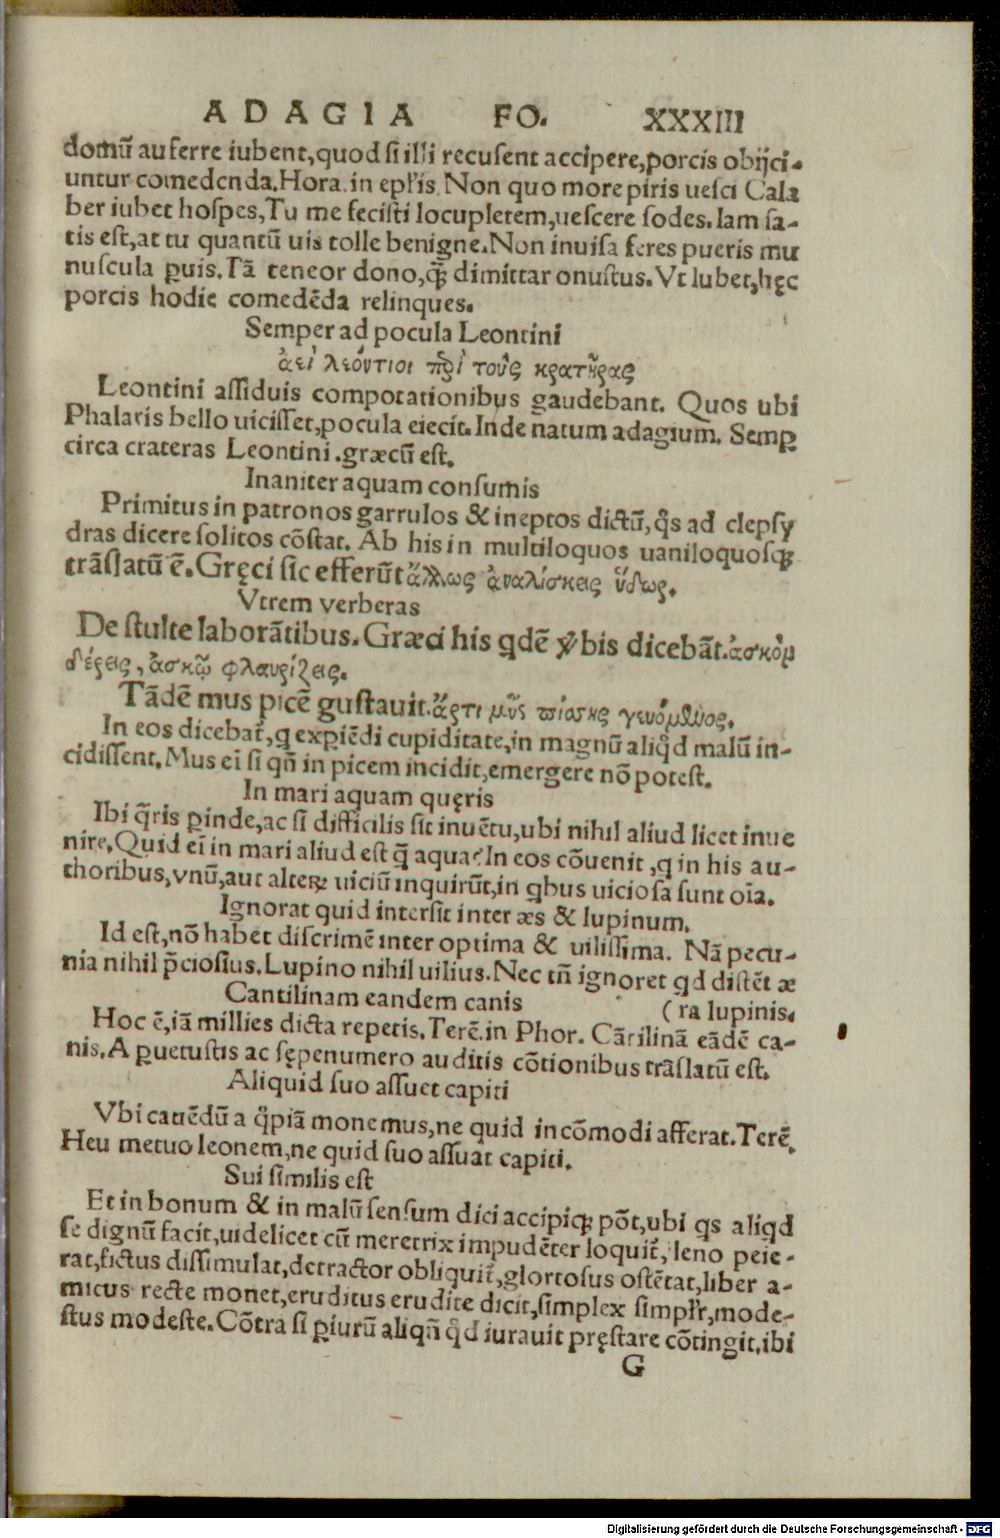 ADAGIA FO. XXXIII
domū auferre iubent,quod si illi recusent accipere,porcis obijci-
untur comedenda.Hora.in epl'is. Non quo more piris uesci Cala
ber iubet hospes,Tu me fecisti locupletem,uescere sodes.Iam sa-
tis est,at tu quantū uis tolle benigne.Non inuisa feres pueris mu
nuscula ꝑuis.Tā teneor dono,ꝙ̄ dimittar onustus.Vt lubet,hęc
porcis hodie comedēda relinques.
Semper ad pocula Leontini
ἀεὶ λεόντιοι πρὶ τοὺς κρατῆρας
Leontini assiduis compotationibus gaudebant. Quos ubi
Phalaris bello uicisset,pocula eiecit.Inde natum adagium. Semꝑ
circa crateras Leontini .græcū est.
Inaniter aquam consumis
Primitus in patronos garrulos & ineptos dictū,q̊s ad clepsy
dras dicere solitos cōstat. Ab his in multiloquos uaniloquosqꝫ
trāslatū ē.Gręci sic efferūt ἄλλως ἀναλίσκεις ὕδωρ.
Vtrem verberas
De stulte laborātibus.Græci his qdē ỽbis dicebāt.ἀσκὸμ
δέρεις, ἀσκῷ φλαυρίζεις.
Tādē mus picē gustauit.ἄρτι μῦς πίσσης γευόμενος.
In eos dicebat̄,q expiēdi cupiditate,in magnū aliq̊d malū in-
cidissent.Mus ei si qn̄ in picem incidit,emergere nō potest.
In mari aquam quęris
Ibi q̄ris ꝑinde,ac si difficilis sit inuētu,ubi nihil aliud licet inue
nire.Quid ei̅ in mari aliud est q̄ aqua?In eos cōuenit ,q in his au-
thoribus,vnū,aut alteꝝ uiciū inquirūt,in qbus uiciosa sunt oi̅a.
Ignorat quid intersit inter æs & lupinum.
Id est,nō habet discrimē inter optima & uilissima. Nā pecu-
nia nihil p̄ciosius.Lupino nihil uilius.Nec tn̄ ignoret qd distēt æ
Cantilinam eandem canis (ra lupinis.
Hoc ē,iā millies dicta repetis.Terē.in Phor. Cātilinā eādē ca-
nis.A ꝑuetustis ac sępenumero auditis cōtionibus trāslatū est.
Aliquid suo assuet capiti
Vbi cauēdū a q̊piā monemus,ne quid incōmodi afferat.Terē.
Heu metuo leonem,ne quid suo assuat capiti.
Sui similis est
Et in bonum & in malū sensum dici accipiqꝫ pōt,ubi qs aliqd
se dignū facit,uidelicet cū meretrix impudēter loquit̄, leno peie-
rat,fictus dissimulat,detractor obliquit̄,gloriosus ostētat,liber a-
micus recte monet,eruditus erudite dicit,simplex simpl'r,mode-
stus modeste.Cōtra si ꝑiurū aliqn̄ q̊d iurauit pręstare cōtingit,ibi
G
Digitalisierung gefördert durch die Deutsche Forschungsgemeinschaft - DFG